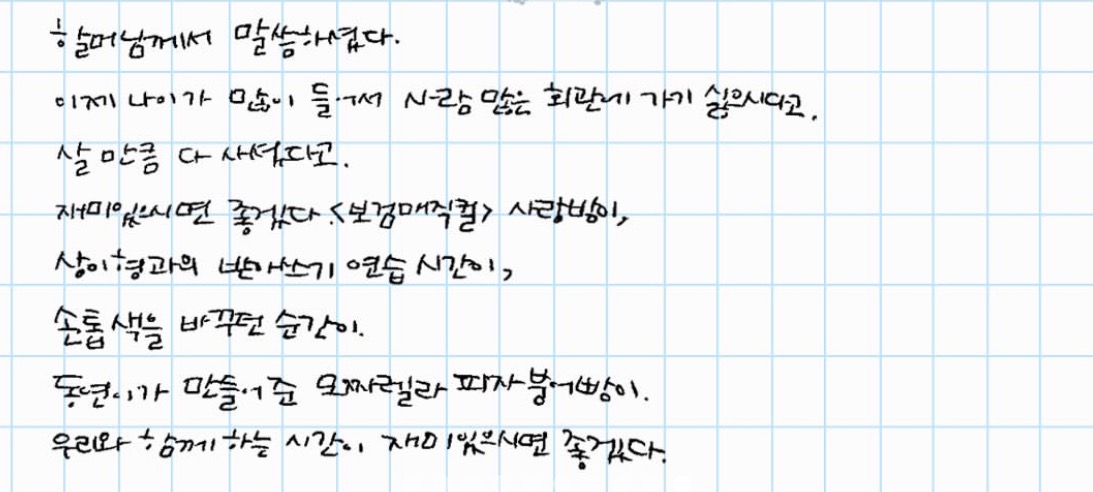 할머님께서 말씀하셨다.
이제 나이가 많이 들어서 사람 많은 회관에 가기 싫으시다고.
살 만큼 다 사셨다고.
재미있으시면 좋겠다. <보검매직컬> 사랑방이,
상이형과의 받아쓰기 연습 시간이,
손톱 색을 바꾸던 순간이.
동연이가 만들어 준 모짜렐라 피자붕어빵이.
우리와 함께하는 시간이 재미있으시면 좋겠다.